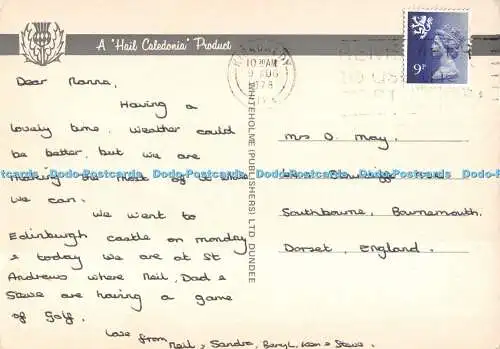 A "Hail Caledonia" Product
10 30 AM
9 AUG
1978
9P
Dear Nanna,
Having a
lovely time. Weather could
be better, but we are
making the most of it while
we can.
We went to
Edinburgh castle on monday
& today we are at St
Andrews where Neil, Dad &
Steve are having a game
of Golf.
Love from
Neil, Sandra, Beryl, Ken & Steve.
WHITEHOLME (PUBLISHERS) LTD DUNDEE
Mrs D. May,
Southbourne, Bournemouth.
Dorset, England.
Dodo-Postcards Dodo-Postcards Dodo-Postcards Dodo-Postcards